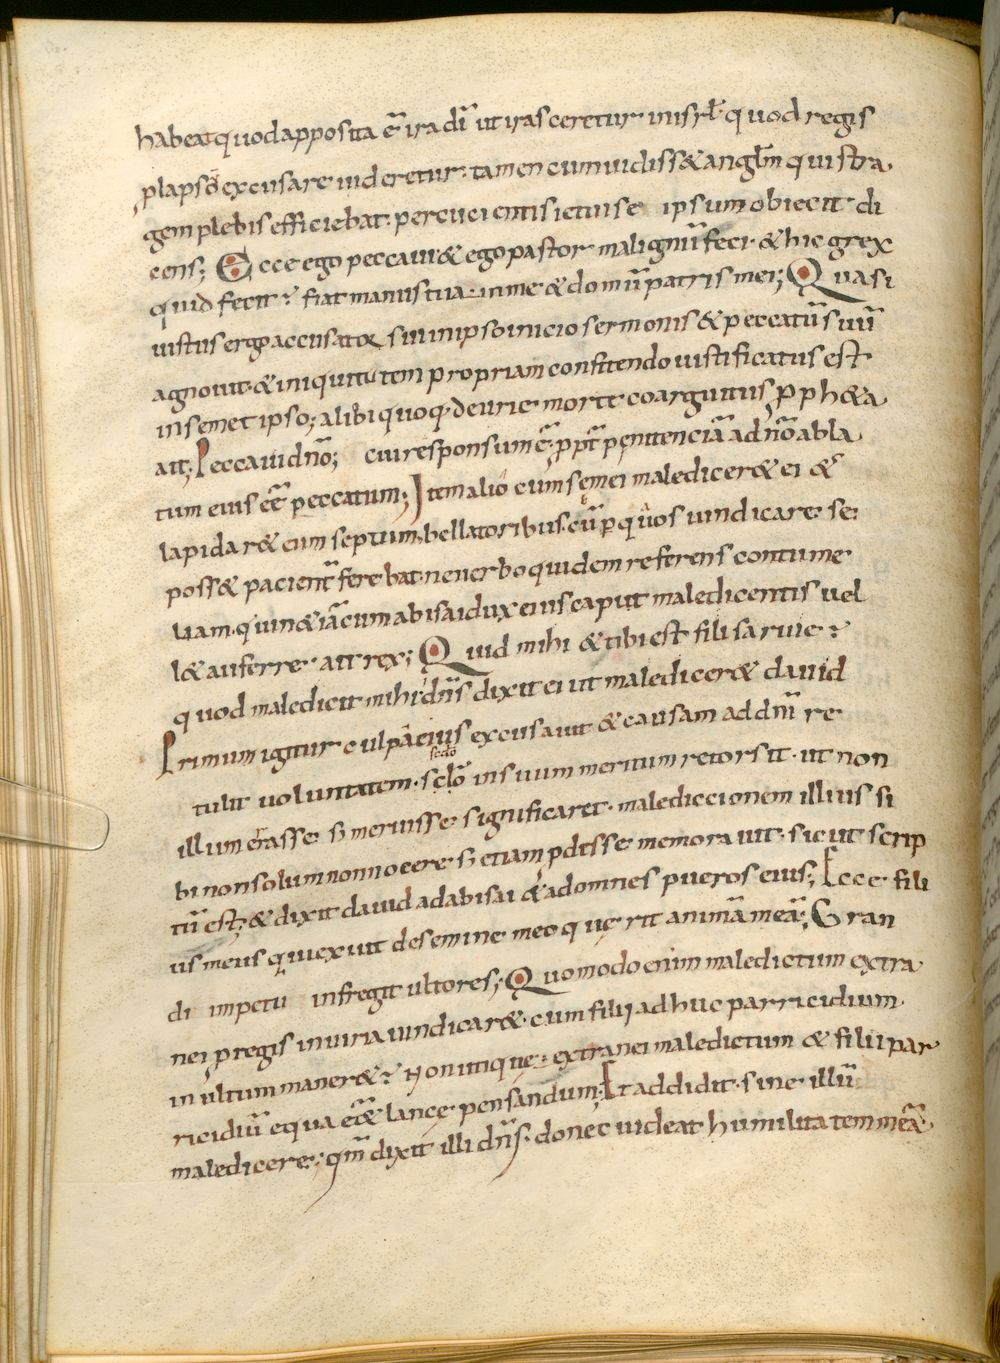 habeat quod apposita ē ira dī ut irasceretur in isrł quod regis
plapsū excusare uideretur. tamen cum uidiss& angłm qui stra
gem plebis efficiebat. percucientis ictui se ipsum obiecit. di
cens; Ecce ego peccaui & ego pastor malignū feci. & hic grex
quid fecit? fiat manus tua in me & domū patris mei; Quasi
iustus ergo accusator sui in ipso inicio sermonis & peccatū suū
agnouit. & iniquitatem propriam confitendo iustificatus est
in semet ipso; alibi quoq. de urie morte coargutus p ph&a
ait; Peccaui dño; cui responsum ē ppt penitenciā ad nō abla
tum eius eē peccatum; Item alio cum semei maledicer& ei &
lapidar& eum septum bellatoribus. cū p quos uindicare se
poss& pacient fere bat ne uerbo quidem referens contume
liam. quin & iā cum abisai dux eius caput maledicentis uel
l& auferre. ait rex; Quid mihi & tibi est fili saruie?
quod maledicit mihi dñs dixit ei ut maledicer& dauid
Primum igitur culpā eius excusauit & causam ad dñi re
tulit uoluntatem. sclō in suum meritum retorsit. ut non
illum errasse. s; meruisse significaret. malediccionem illius si
bi non solum non nocere s; etiam pdesse memorauit. sicut scrip
tū est; & dixit dauid ad abisai & ad omnes pueros eius; Ecce fili
us meus qui exiuit de semine meo querit animā meā; Gran
di impetu infregit ultores; Quomodo enim maledictum extra
nei p regis iniuria uindicar& cum filij adhuc parricidium
inultum maner&? Non utique. extranei maledictum & filii par
ricidiū equa eāde lance pensandum; Et addidit. sine illū
maledicere. qm dixit illi dñs. donec uideat humilitatem meā